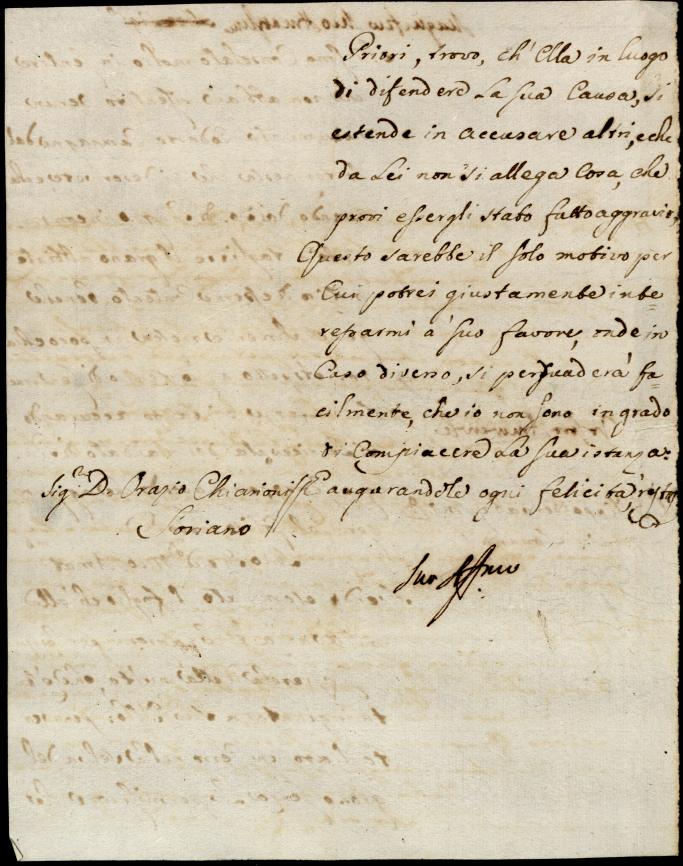 Priori, trovo, ch'Ella in luogo
di difendere la sua Causa, si
estende in accusare altri, e che
da Lei non si allega Cosa, che
provi essergli stato fatto aggravio,
Questo sarebbe il solo motivo per
Cui potrei giustamente inte=
ressarmi à suo favore, onde in
Caso diverso, si persuaderà fa=
cilmente, che io non sono in grado
di Compiacere la sua istanza:
Sig.re D. Orazio Chiarioni augurandole ogni felicità, resto
Soriano
Suo Affmo